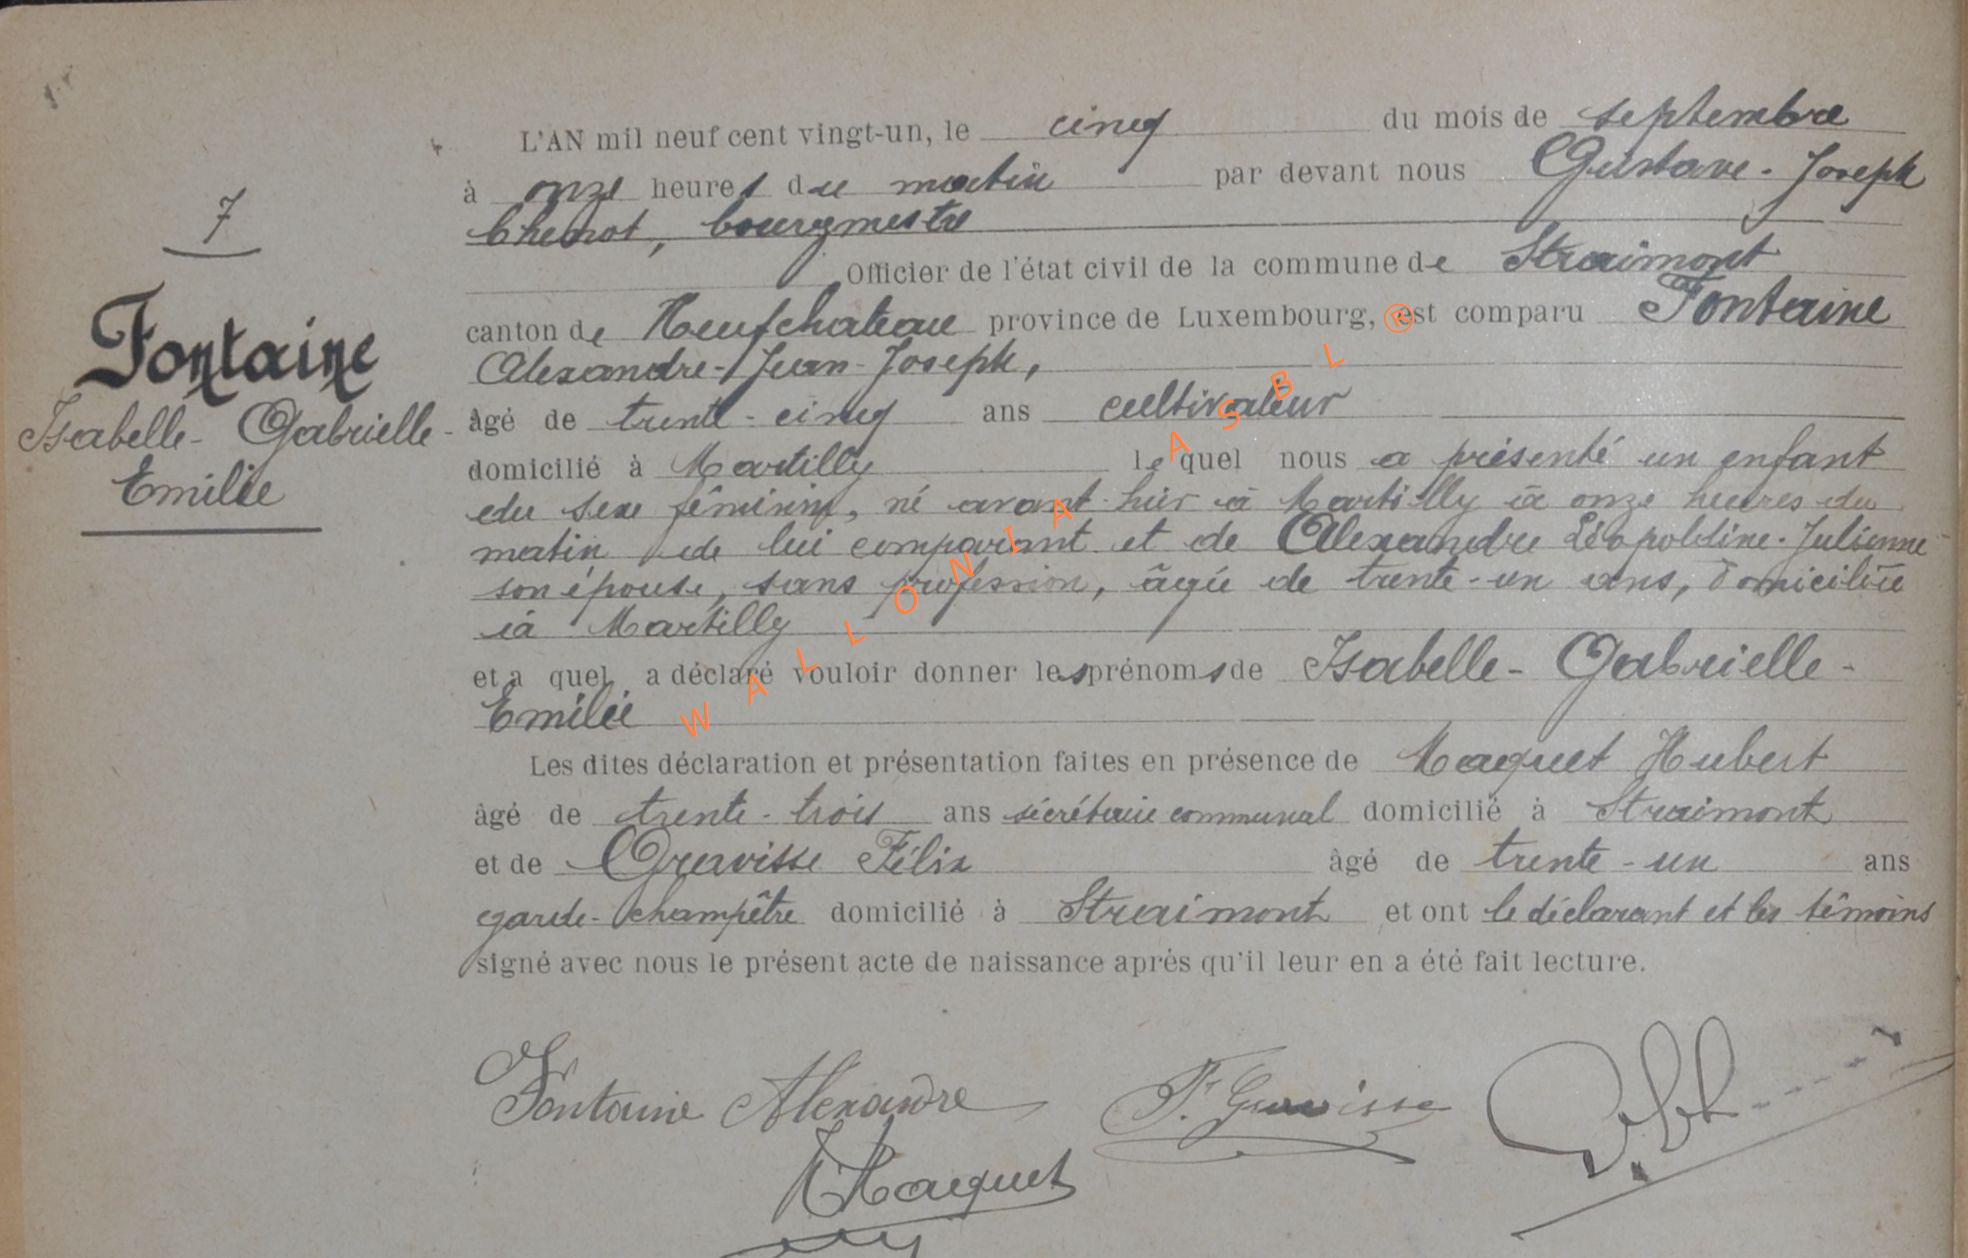 7
Fontaine
Isabelle - Gabrielle -
Emilie
L'AN mil neuf cent vingt-un, le cinq du mois de septembre
à onze heures du matin par devant nous Gustave - Joseph
Chenot, bourgmestre
Officier de l'état civil de la commune de Straimont
canton de Neufchateau province de Luxembourg, est comparu Fontaine
Alexandre - Jean - Joseph,
âgé de trente - cinq ans cultivateur
domicilié à Martilly lequel nous a présenté un enfant
du sexe féminin, né avant-hier à Martilly à onze heures du
matin de lui comparant et de Alexandre Léopoldine - Julienne
son épouse, sans profession, âgée de trente - un ans, domiciliée
à Martilly
et a quel a déclaré vouloir donner les prénoms de Isabelle - Gabrielle -
Emilie
Les dites déclaration et présentation faites en présence de Maquet Hubert
âgé de trente - trois ans sécrétaire communal domicilié à Straimont
et de Gravisse Félix âgé de trente - un ans
garde - champêtre domicilié à Straimont et ont le déclarant et les témoins
signé avec nous le présent acte de naissance après qu'il leur en a été fait lecture.
Fontaine Alexandre F. Gravisse
HMaquet
WALLONIA ASBL ®